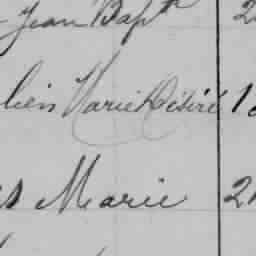 Jean Bapt
lien Marie Désiré 1
s Marie 2